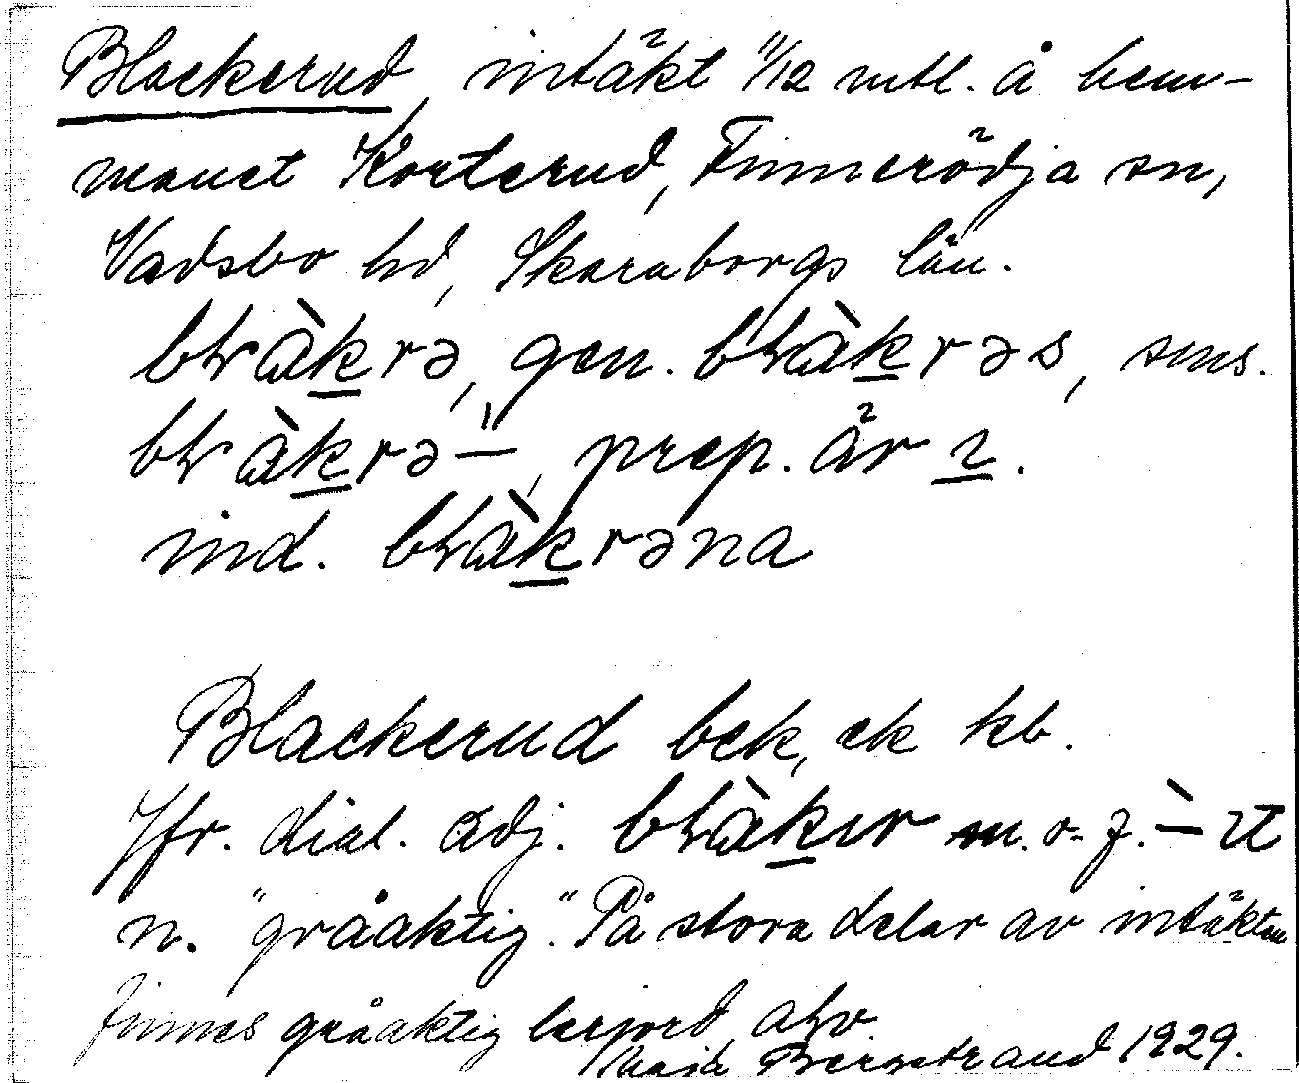 Blackerud, intäkt 11/12 mtl. å hem-
manet Korterud, Finnerödja sn,
Vadsbo hd, Skaraborgs län.
bɫàkrə, gen. bɫàkrəs, sms.
bɫàkrə–̋, prep. år ɩ.
ind. bɫàkrəna
Blackerud bek, ek kb.
Jfr. dial. adj. bɫàkɩr m. o. f. –̀ ɩt
n. "gråaktig". På stora delar av intäkten
finnes gråaktig lerjord
Maja Bergstrand 1929.